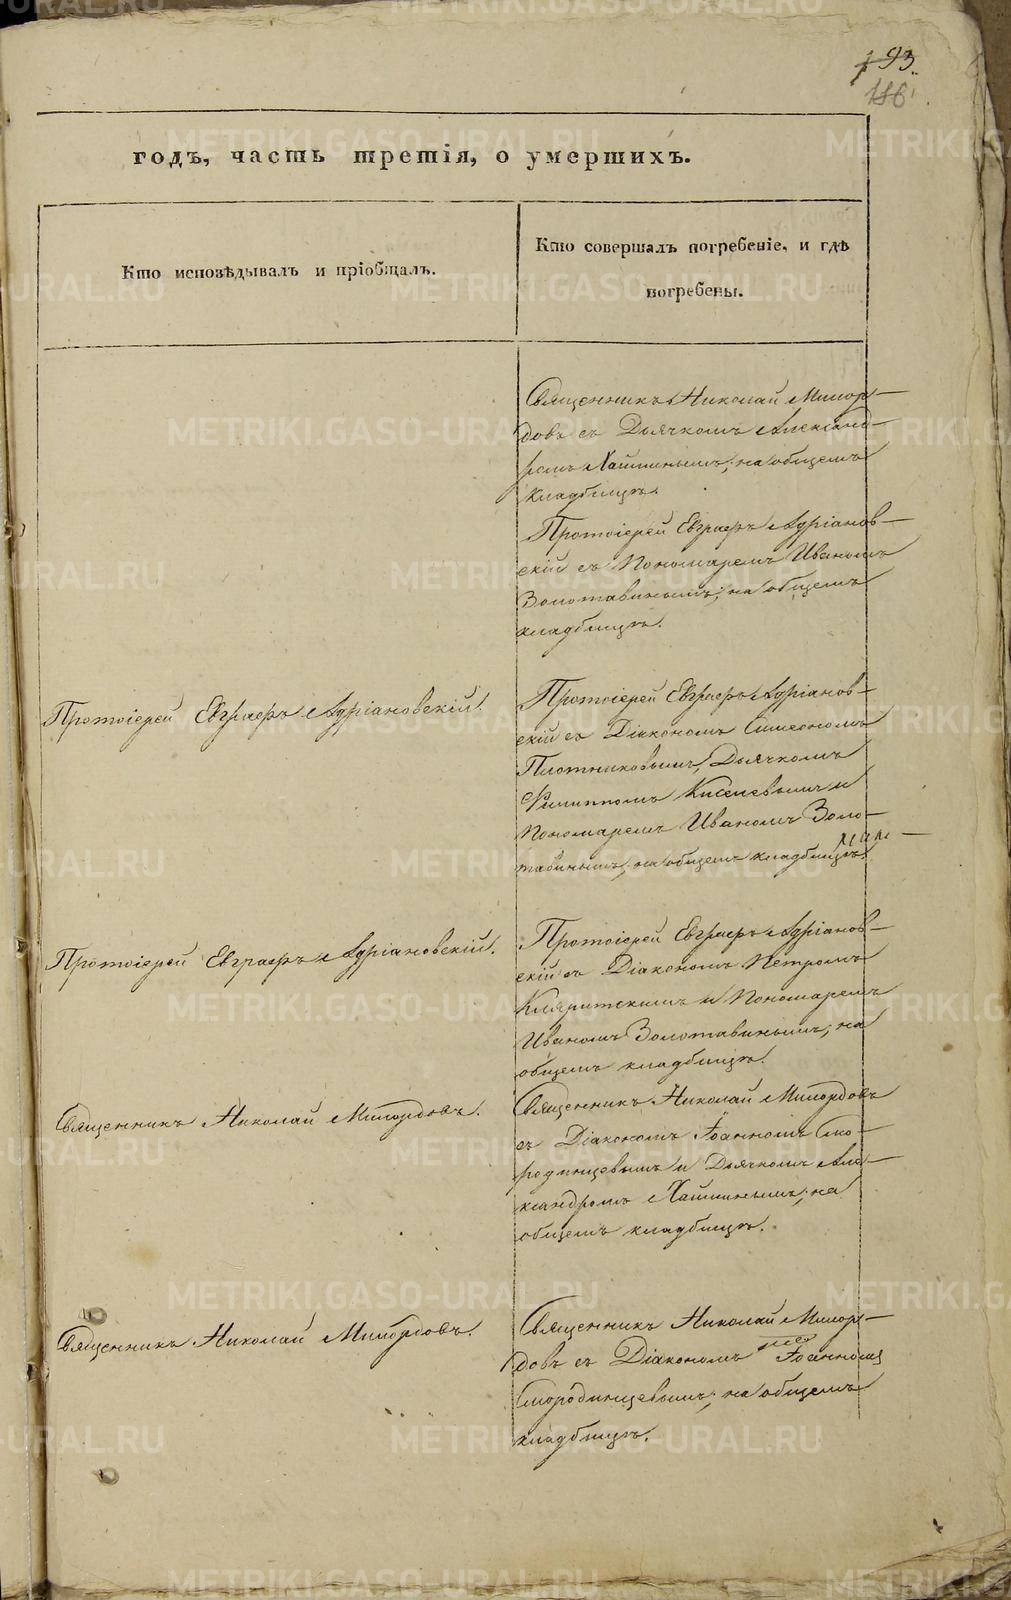 93
186
годъ, часть третія, о умершихъ.
Кто исповѣдывалъ и пріобщалъ.
Кто совершалъ погребеніе, и гдѣ
погребены.
Священникъ Николай Милор-
довъ съ Дьячкомъ Александ-
ромъ Хайминымъ; на общемъ
кладбищѣ.
Протоіерей Евграфъ Адріанов-
скій съ Пономаремъ Иваномъ
Золотавинымъ; на общемъ
кладбищѣ.
Протоіерей Евграфъ Адріановскій.
Протоіерей Евграфъ Адріанов-
скій съ Діакономъ Симеономъ
Плотниковымъ, Дьячкомъ
Филиппомъ Киселевымъ и
Пономаремъ Иваномъ Золо-
тавинымъ; на общемъ кладбищѣ.
Протоіерей Евграфъ Адріановскій.
Протоіерей Евграфъ Адріанов-
скій съ Діакономъ Петромъ
Кляритскимъ и Пономаремъ
Иваномъ Золотавинымъ; на
общемъ кладбищѣ.
Священникъ Николай Милордовъ.
Священникъ Николай Милордовъ
съ Діакономъ Іоанномъ Смо-
родинцевымъ и Дьячкомъ Але-
ксандромъ Хайминымъ; на
общемъ кладбищѣ.
Священникъ Николай Милордовъ.
Священникъ Николай Милор-
довъ съ Діакономъ Іоанномъ
Смородинцевымъ; на общемъ
кладбищѣ.
METRIKI.GASO-URAL.RU